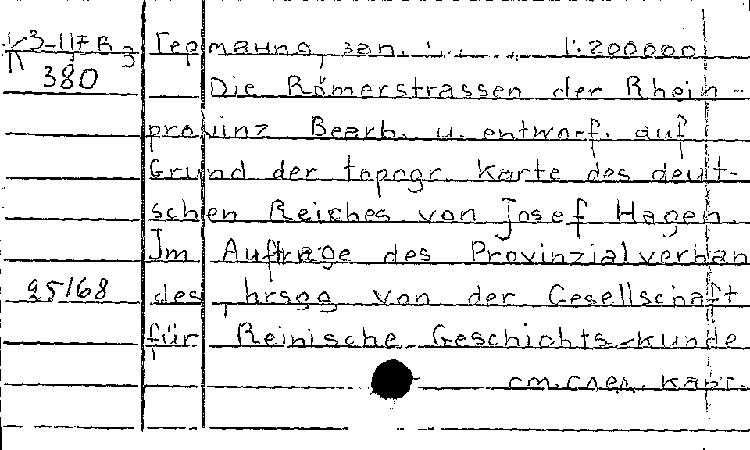 K3-11
380
Германия, зап. 1:200000
Die Römerstrassen der Rhein-
provinz Bearb. u. entworf. auf
Grund der topogr. Karte des deut-
schen Reiches von Josef Hagen.
Im Auftrage des Provinzialverban
95/68
des hrsgg von der Gesellschaft
für Reinische Geschichts-kunde
см. след. карт.